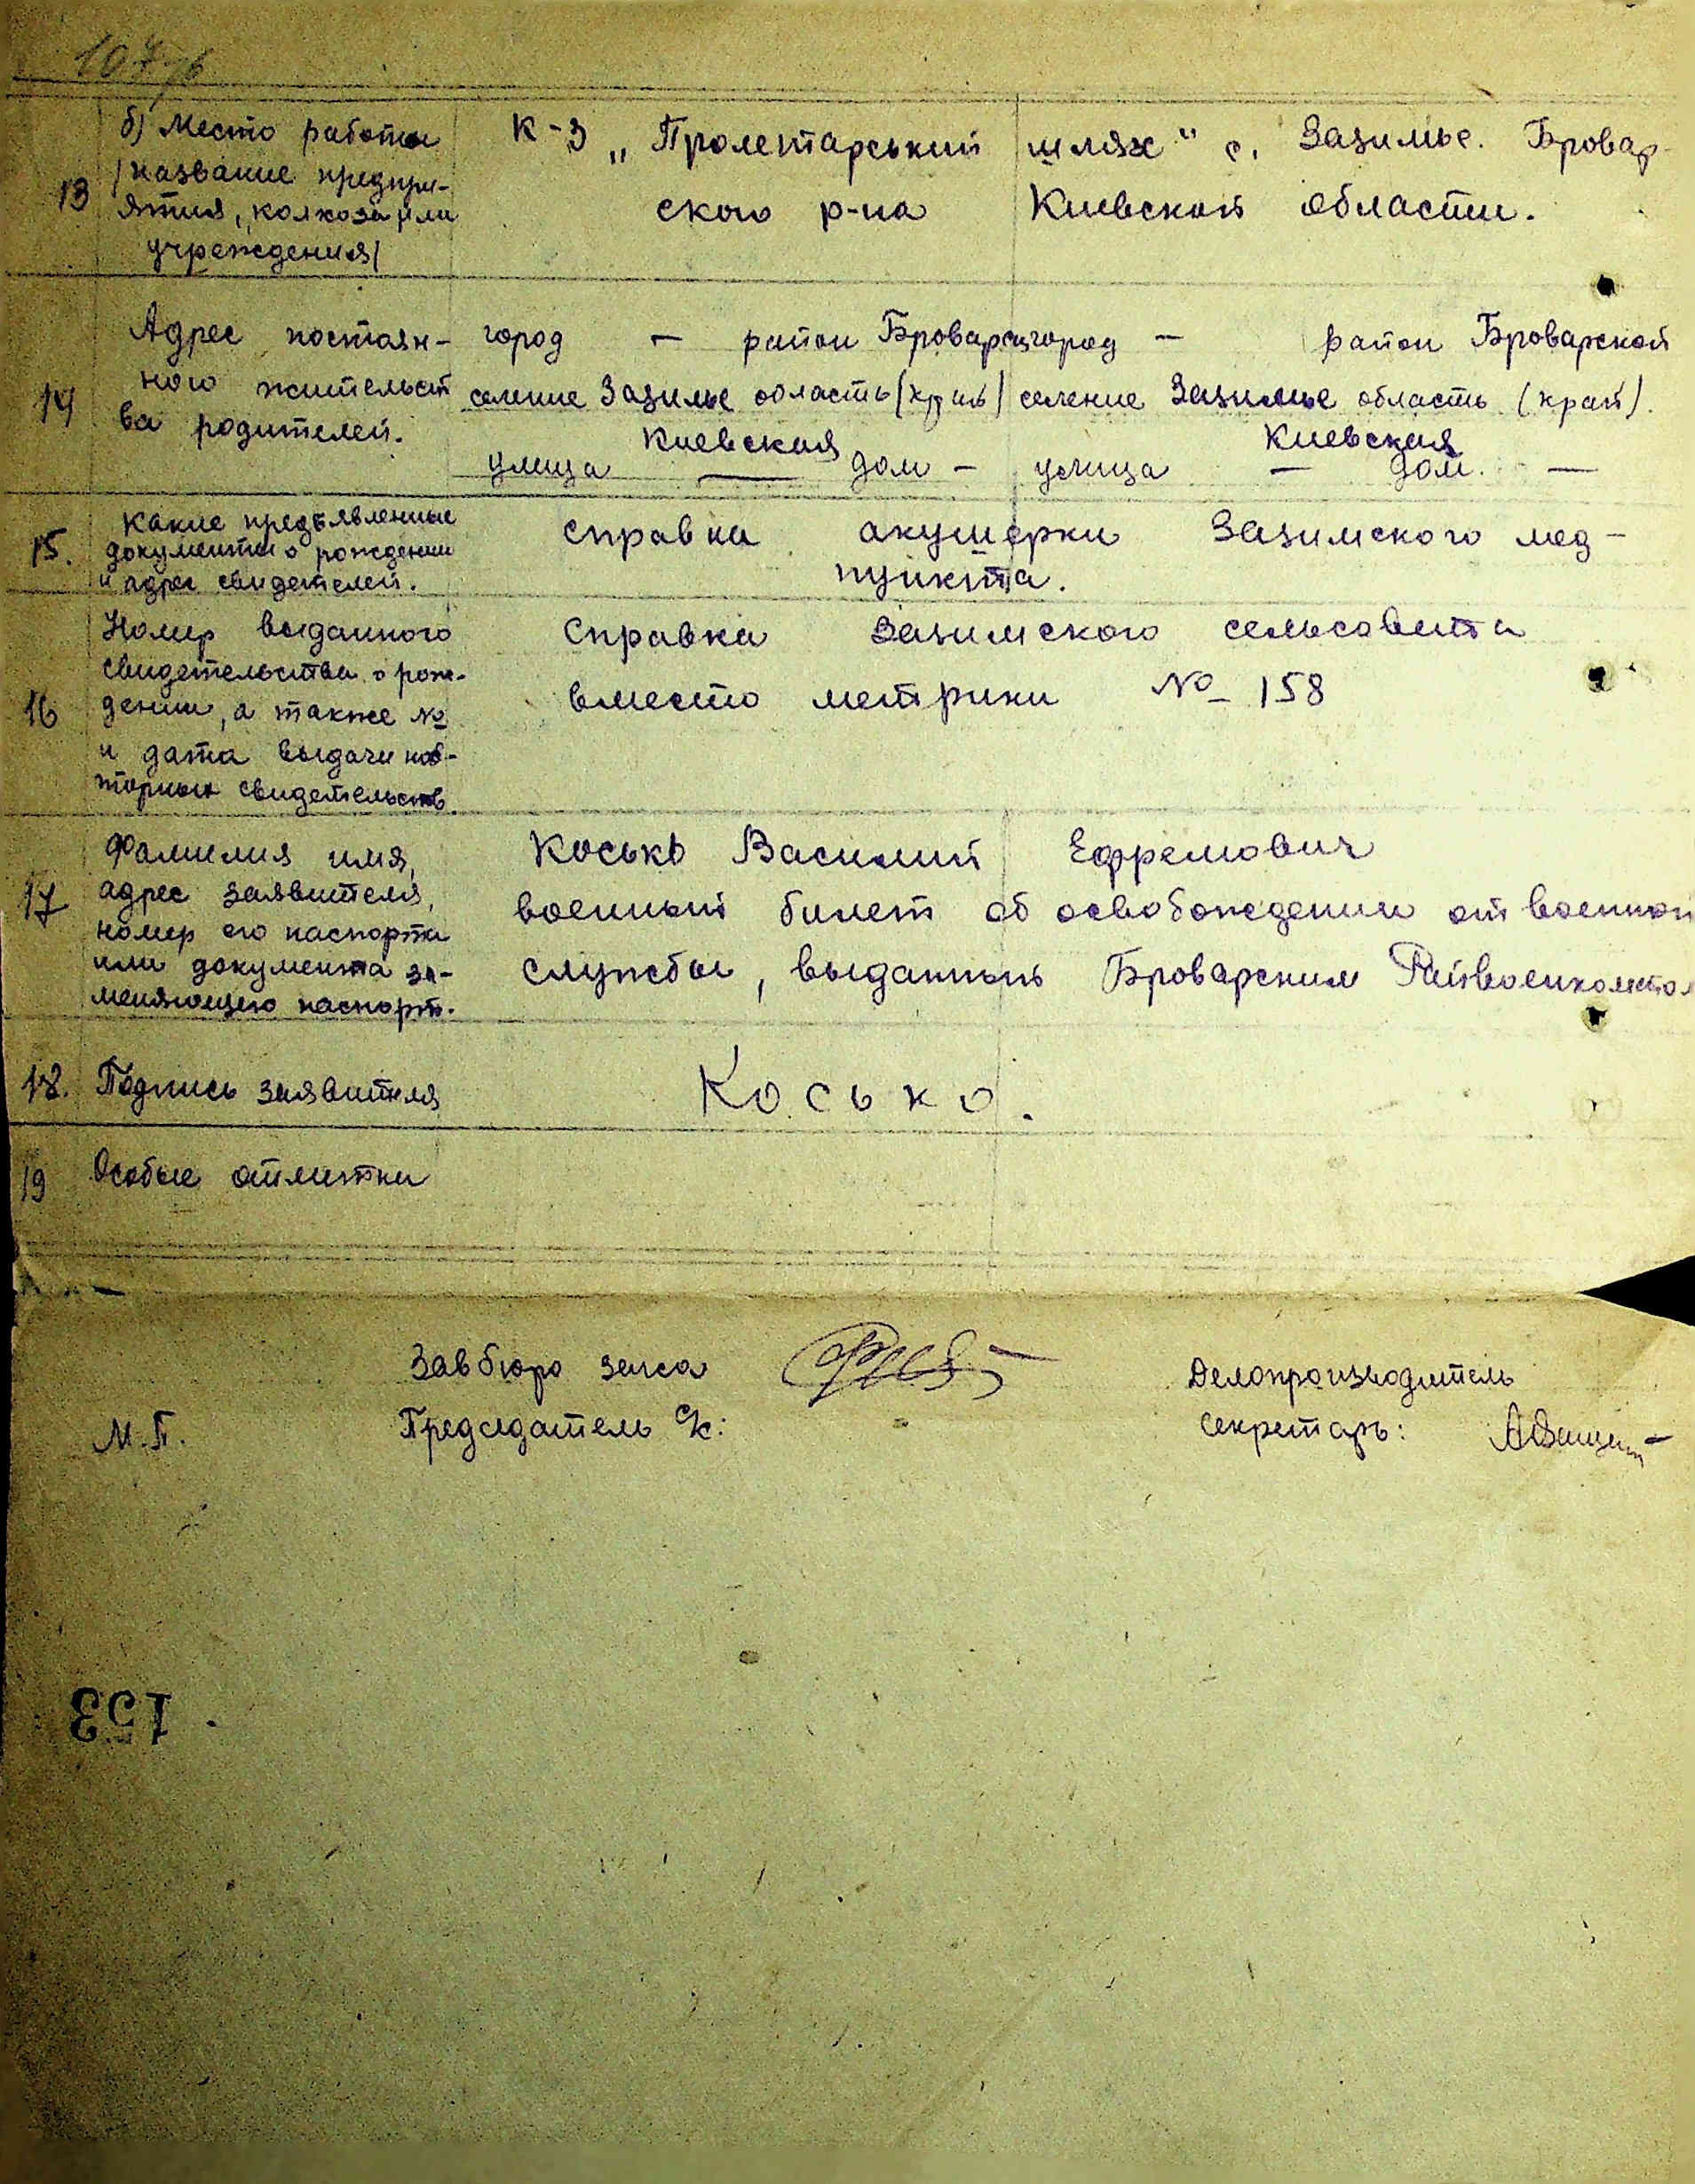 13 б) Место работы К-з „Пролетарський шлях" с. Зазимье. Бровар-
/название предпри- ского р-на Киевской области.
ятия, колхоза или
учреждения/
14 Адрес постоян- город — район Броварс город — район Броварской
ного жительст селение Зазимье область (край) селение Зазимье область (край).
ва родителей. Киевская Киевская
улица — дом — улица — дом. —
15. Какие предъявленные справка акушерки Зазимского мед-
документы о рождении пункта.
и адрес свидетелей.
16 Номер выданного Справка Зазимского сельсовета
свидетельства о рож-
дении, а также № вместо метрики № 158
и дата выдачи пов-
торных свидетельств.
17 Фамилия имя, Косько Василий Ефремович
адрес заявителя, военный билет об освобождении от военной
номер его паспорта
или документа за- службы, выданный Броварским Райвоенкоматом
меняющего паспорт.
18. Подпись заявителя Косько.
19 Особые отметки
Завбюро загса Делопроизводитель
М.П. Председатель с/с: Секретарь:
153